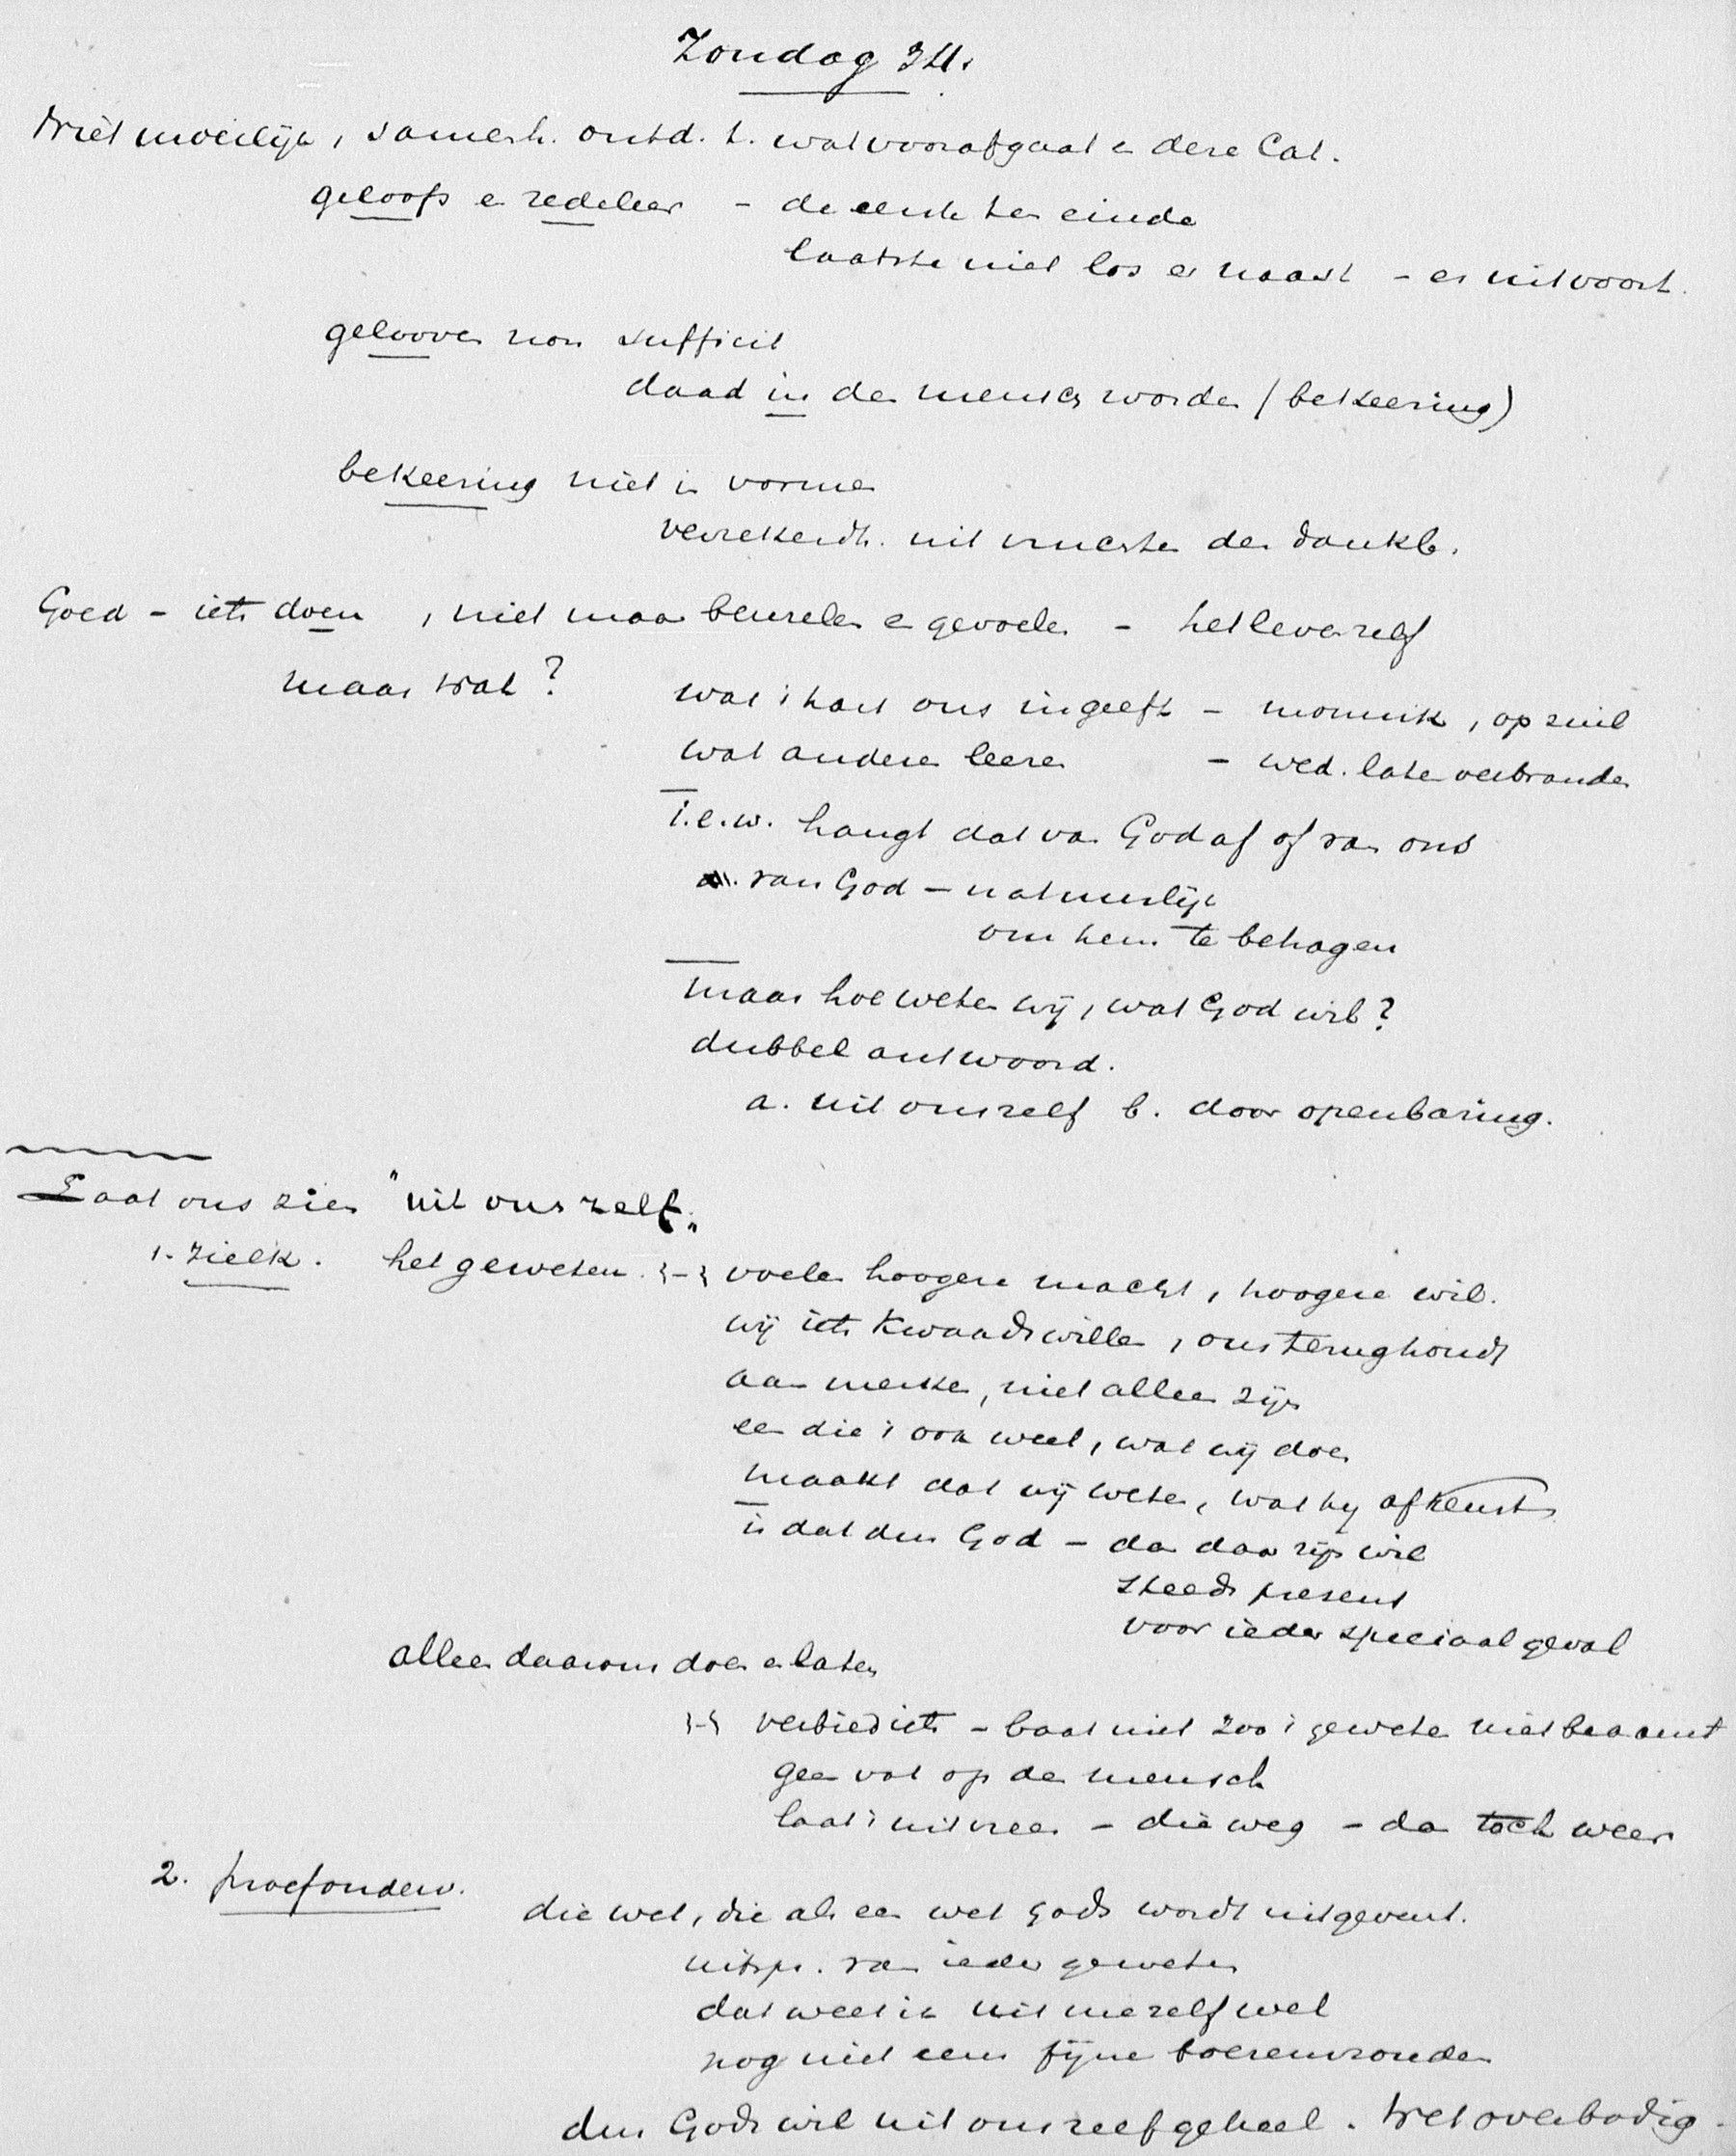 Zondag 34.
Niet moeilijk, samenh. ontd. t. wat voorafgaat en deze Cat.
geloofs en zedeleer - de eerste ten einde
laatste niet los er naast - er uit voort.
gelooven non sufficit
daad in den mensch worden (bekeering)
bekeering niet in vormen
verzekerdh. uit vruchten der dankb.
Goed - iets doen, niet maar beuzelen en gevoelen - het leven zelf
maar wat?
wat 't hart ons ingeeft - monnik, op zuil
wat anderen leeren - wed. laten verbranden
i.e.w. hangt dat van God af of van ons
van God - natuurlijk
om hem te behagen
maar hoe weten wij, wat God wil?
dubbel antwoord.
a. uit onszelf b. door openbaring.
Laat ons zien "uit ons zelf"
1. zielk. het geweten. }-{ voelen hoogere macht, hoogere wil.
wij iets kwaads willen, ons terughoudt
aan merken, niet alleen zijn
een die 't ook weet, wat wij doen
maakt dat wij weten, wat hij afkeurt
is dat dus God - dan daar zijn wil
steeds present
voor ieder speciaal geval
alleen daarom doen en laten
}-{ verbied iets - baat niet zoo 't geweten niet beaamt
geen vat op den mensch
laat 't uit vrees - die weg - dan toch weer
2. proefonderv.
die wet, die als een wet Gods wordt uitgevent.
uitspr. van ieders geweten
dat weet ik uit mezelf wel
nog niet eens fijne boerenzonden
dus Gods wil uit onszelf geheel. Wet overbodig.